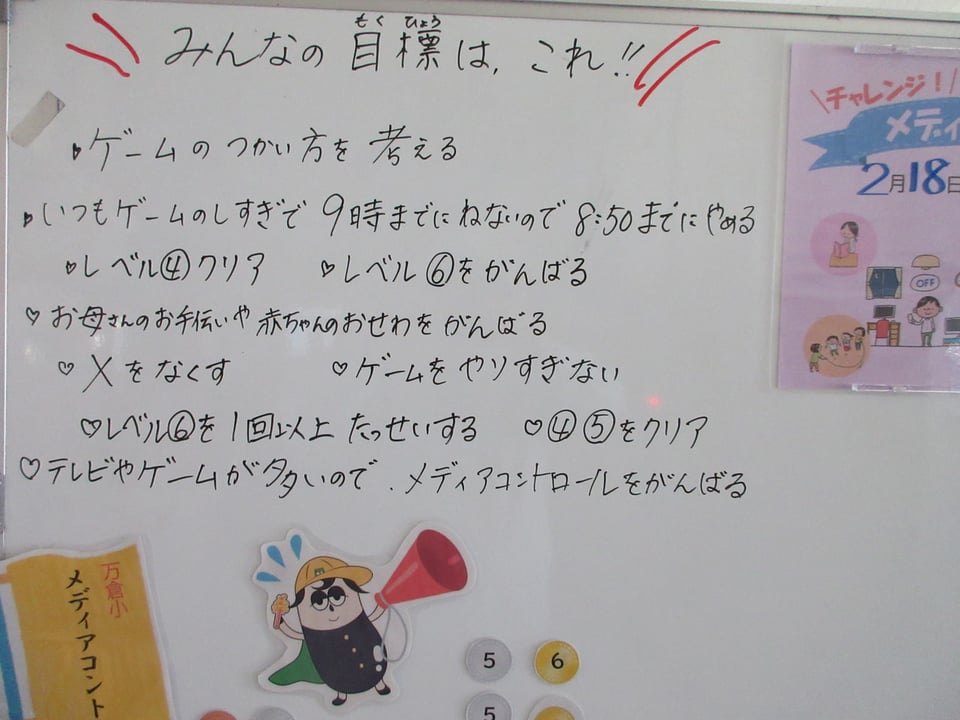 みんなの目標は、これ!!
もくひょう
ゲームのつかい方を考える
いつもゲームのしすぎで9時までにねないので8:50までにやめる
レベル④クリア ♡レベル⑥をがんばる
♡お母さんのお手伝いや赤ちゃんのおせわをがんばる
♡×をなくす ♡ゲームをやりすぎない
♡レベル⑥を1回以上たっせいする ♡④⑤をクリア
♡テレビやゲームが多いので、メディアコントロールをがんばる
チャレンジ!
メディ
2月18日
OFF
万倉小
メディアコント
5 6
5